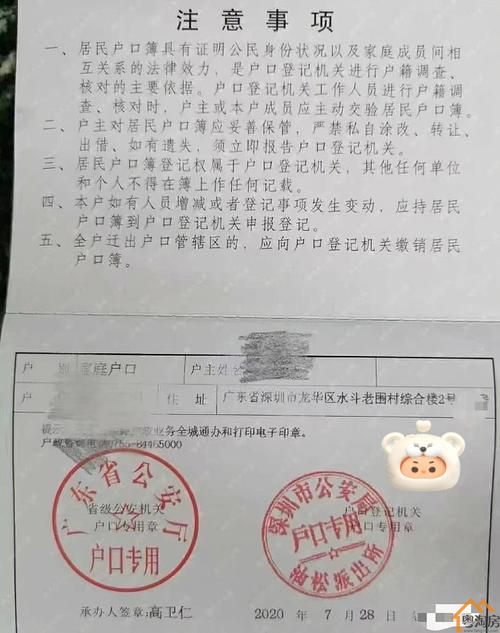 注意事项
一、居民户口簿具有证明公民身份状况以及家庭成员间相
互关系的法律效力，是户口登记机关进行户籍调查、
核对的主要依据。户口登记机关工作人员进行户籍调
查、核对时，户主或本户成员应主动交验居民户口簿。
二、户主对居民户口簿应妥善保管，严禁私自涂改、转让、
出借、如有遗失，须立即报告户口登记机关。
三、居民户口簿登记权属于户口登记机关，其他任何单位
和个人不得在簿上作任何记载。
四、本户如有人员增减或者登记事项发生变动，应持居民
户口簿到户口登记机关申报登记。
五、全户迁出户口管辖区的，应向户口登记机关缴销居民
户口簿。
户别 家庭户口 户主姓名
户 住址 广东省深圳市龙华区水斗老围村综合楼2号
提示 业务全城通办和打印电子印章。
户政咨询电话0755-84465000
广东省公安厅
省级公安机关
户口专用章
户口专用
深圳市公安局
户口登记机关
户口专用章
户口专用
派出所
承办人签章：高卫仁 2020 年 7 月 28 日
粤淘房